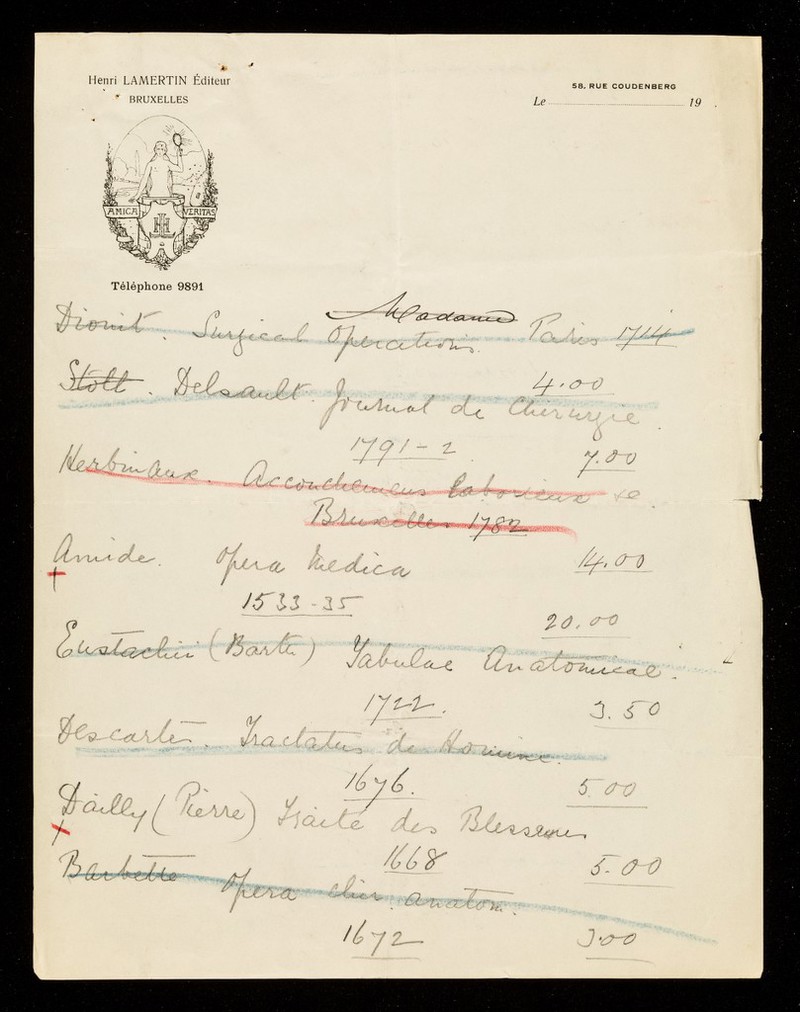 Henri LAMERTIN Éditeur
BRUXELLES
58, RUE COUDENBERG
Le 19 .
AMICA VERITAS
HL
Téléphone 9891
Madame
Dionis. Surgical Operations. Paris 1714
4.00
Stoll. Delsault. Journal de Chirurgie.
1791-2. 7.00
Herbinaux. Accouchemens Laborieux
Bruxelles 1782
14.00
Amide. Opera Medica
1533-35
20.00
Eustachii (Barth.) Tabulae Anatomicae.
1722. 3.50
Descartes. Tractatus de Homine.
1676. 5.00
Dailly (Pierre) Traité des Blessures
1668 5.00
Barbette Opera chir. anatom.
1672 3.00